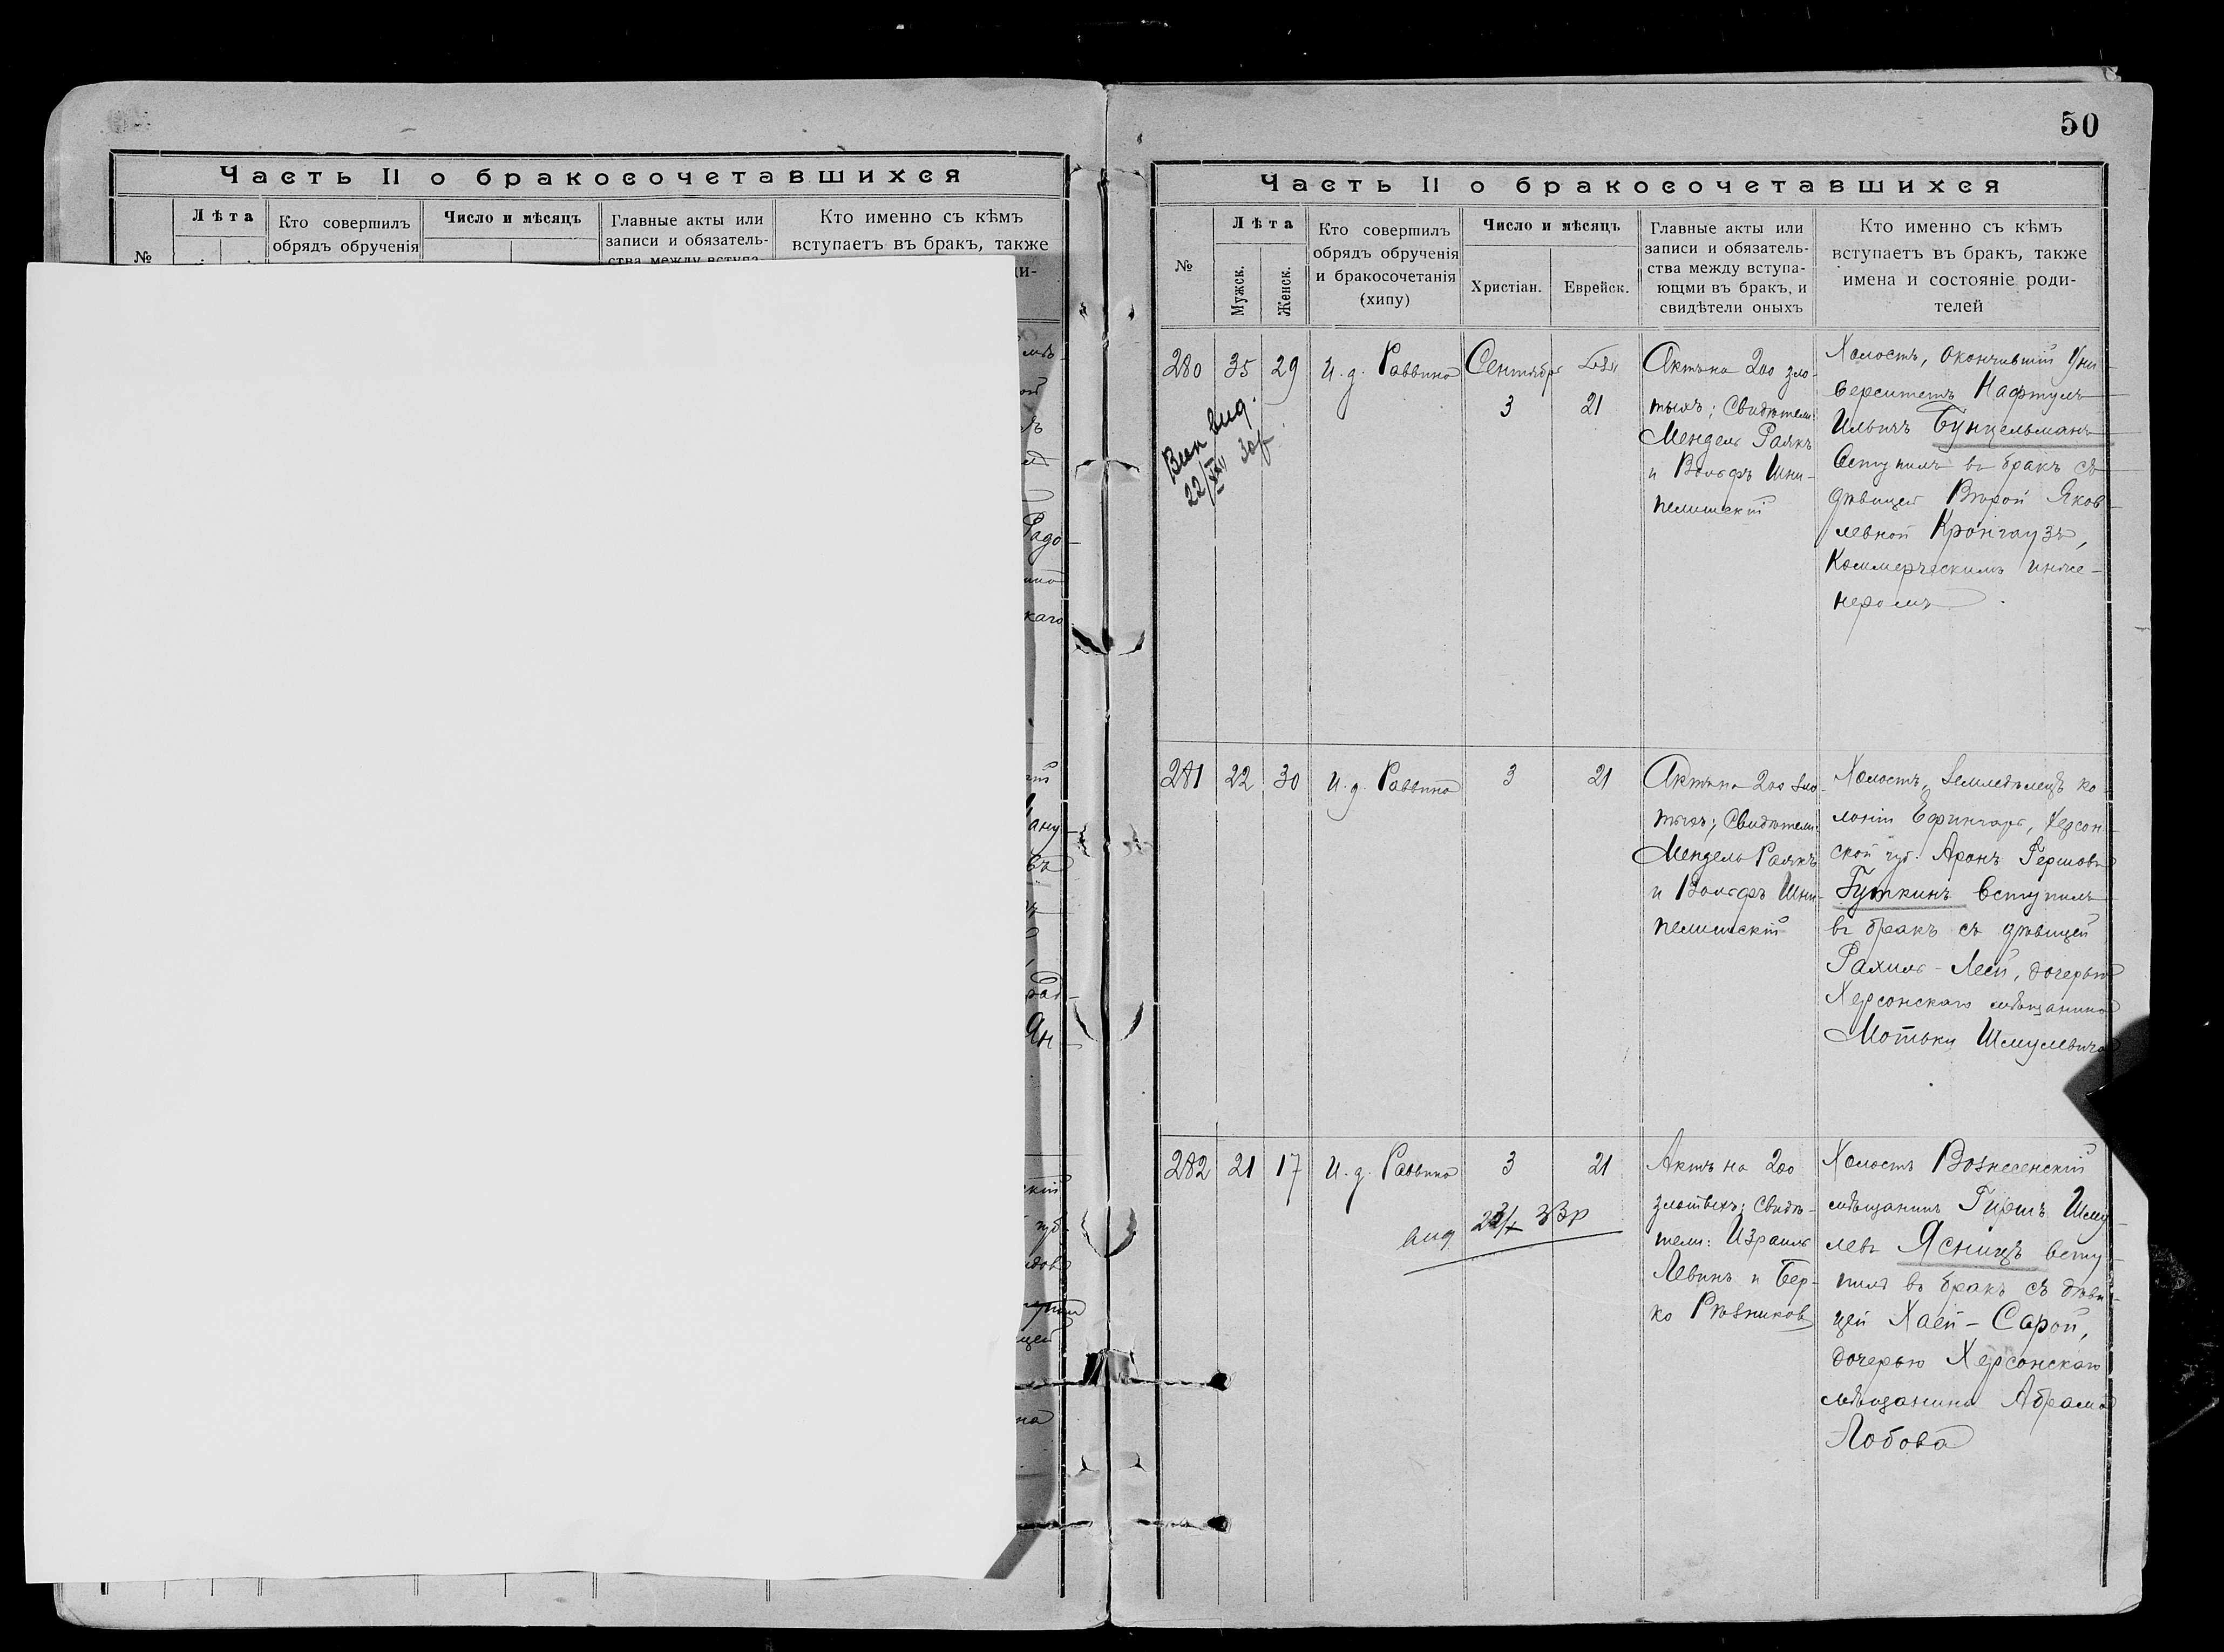 Часть II о бракосочетавшихся
№
Лѣта
Кто совершилъ
обрядъ обрученія
Число и мѣсяцъ
Главные акты или
записи и обязатель-
ства между вступа-
Кто именно съ кѣмъ
вступаетъ въ бракъ, также
Радо-
каго
50
Часть II о бракосочетавшихся
№
Лѣта
Мужск.
Женск.
Кто совершилъ
обрядъ обрученія
и бракосочетанія
(хипу)
Число и мѣсяцъ
Христіан.
Еврейск.
Главные акты или
записи и обязатель-
ства между вступа-
ющми въ бракъ, и
свидѣтели оныхъ
Кто именно съ кѣмъ
вступаетъ въ бракъ, также
имена и состояніе роди-
телей
280
35
29
И. д. Раввина
Сентябрь
3
21
Актъ на 200 зло-
тыхъ; Свидѣтели:
Мендель Раякъ
и Вольфъ Шни-
пелишскій
Холостъ, окончившій Уни-
верситетъ Нафтулъ
Ильичъ Бунцельманъ
Вступилъ въ бракъ съ
дѣвицей Вѣрой Яков-
левной Кронгаузъ,
Коммерческимъ инже-
неромъ.
22/XII
281
22
30
И. д. Раввина
3
21
Актъ на 200 зло-
тыхъ; Свидѣтели:
Мендель Раякъ
и Вольфъ Шни-
пелишскій
Холостъ, Земледѣлецъ ко-
лоніи Ефингаръ, Херсон-
ской губ. Аронъ Гершовъ
Гуткинъ вступилъ
въ бракъ съ дѣвицей
Рахиль-Леей, дочерью
Херсонскаго мѣщанина
Мотьки Шмулевича
282
21
17
И. д. Раввина
3
21
Актъ на 200
злотыхъ; Свидѣ-
тели: Израиль
Левинъ и Бер-
ко Рѣзниковъ
Холостъ Вознесенскій
мѣщанинъ Гиршъ Шму-
левъ Ясницъ всту-
пилъ въ бракъ съ дѣви-
цей Хаей-Сарой,
дочерью Херсонскаго
мѣщанина Абрама
Лобова